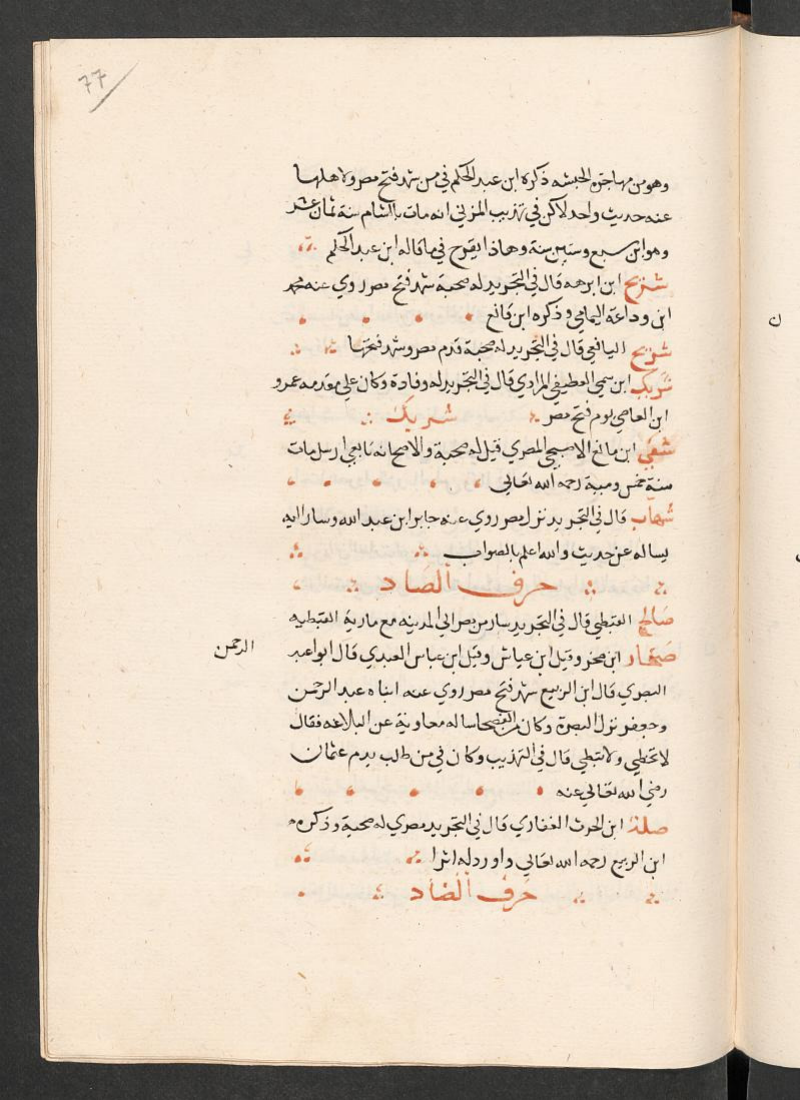 77
وهو من مهاجرة الحبشه ذكره ابن عبد الحكم في من شهد فتح مصر ولاهلها
عنه حديث واحد لاكن في تهذيب المزني انه مات بالشام سنة ثمان عشر
وهو ابن سبع وستين سنة وهاذا يقدح في ما قاله ابن عبد الحكم
شريح ابن ابرهه قال في التجريد له صحبة شهد فتح مصر روي عنه محمد
ابن وداعة اليمامي وذكره ابن قانع
شريح اليافعي قال في التجريد له صحبة قدم مصر وشهد فتحها
شريك ابن سمي الغطيفي المرادي قال في التجريد له وفادة وكان علي مقدمه عمرو
ابن العاصي يوم فتح مصر شريك
شفي ابن ماتع الاصبحي المصري قيل له صحبة والاصح انه تابعي ارسل مات
سنة خمس ومية رحمه الله تعالى
شهاب قال في التجريد نزل مصر روي عنه جابر ابن عبد الله وسار اليه
يساله عن حديث والله اعلم بالصواب
حرف الصاد
صالح القبطي قال في التجريد سار من مصر الي المدينه مع مارية القبطيه
صحار ابن صخر وقيل ابن عياش وقيل ابن عباس العبدي قال ابو عبد
الرحمن
البصري قال ابن الربيع شهد فتح مصر روي عنه ابناه عبد الرحمن
وجعفر نزل البصرة وكان من الفصحا ساله معاوية عن البلاغه فقال
لا تخطي ولا تبطي قال في التهذيب وكان في من طالب بدم عثمان
رضي الله تعالي عنه
صلة ابن الحرث الغفاري قال في التجريد مصري له صحبة وذكره
ابن الربيع رحمه الله تعالي واورد له اثرا
حرف الضاد